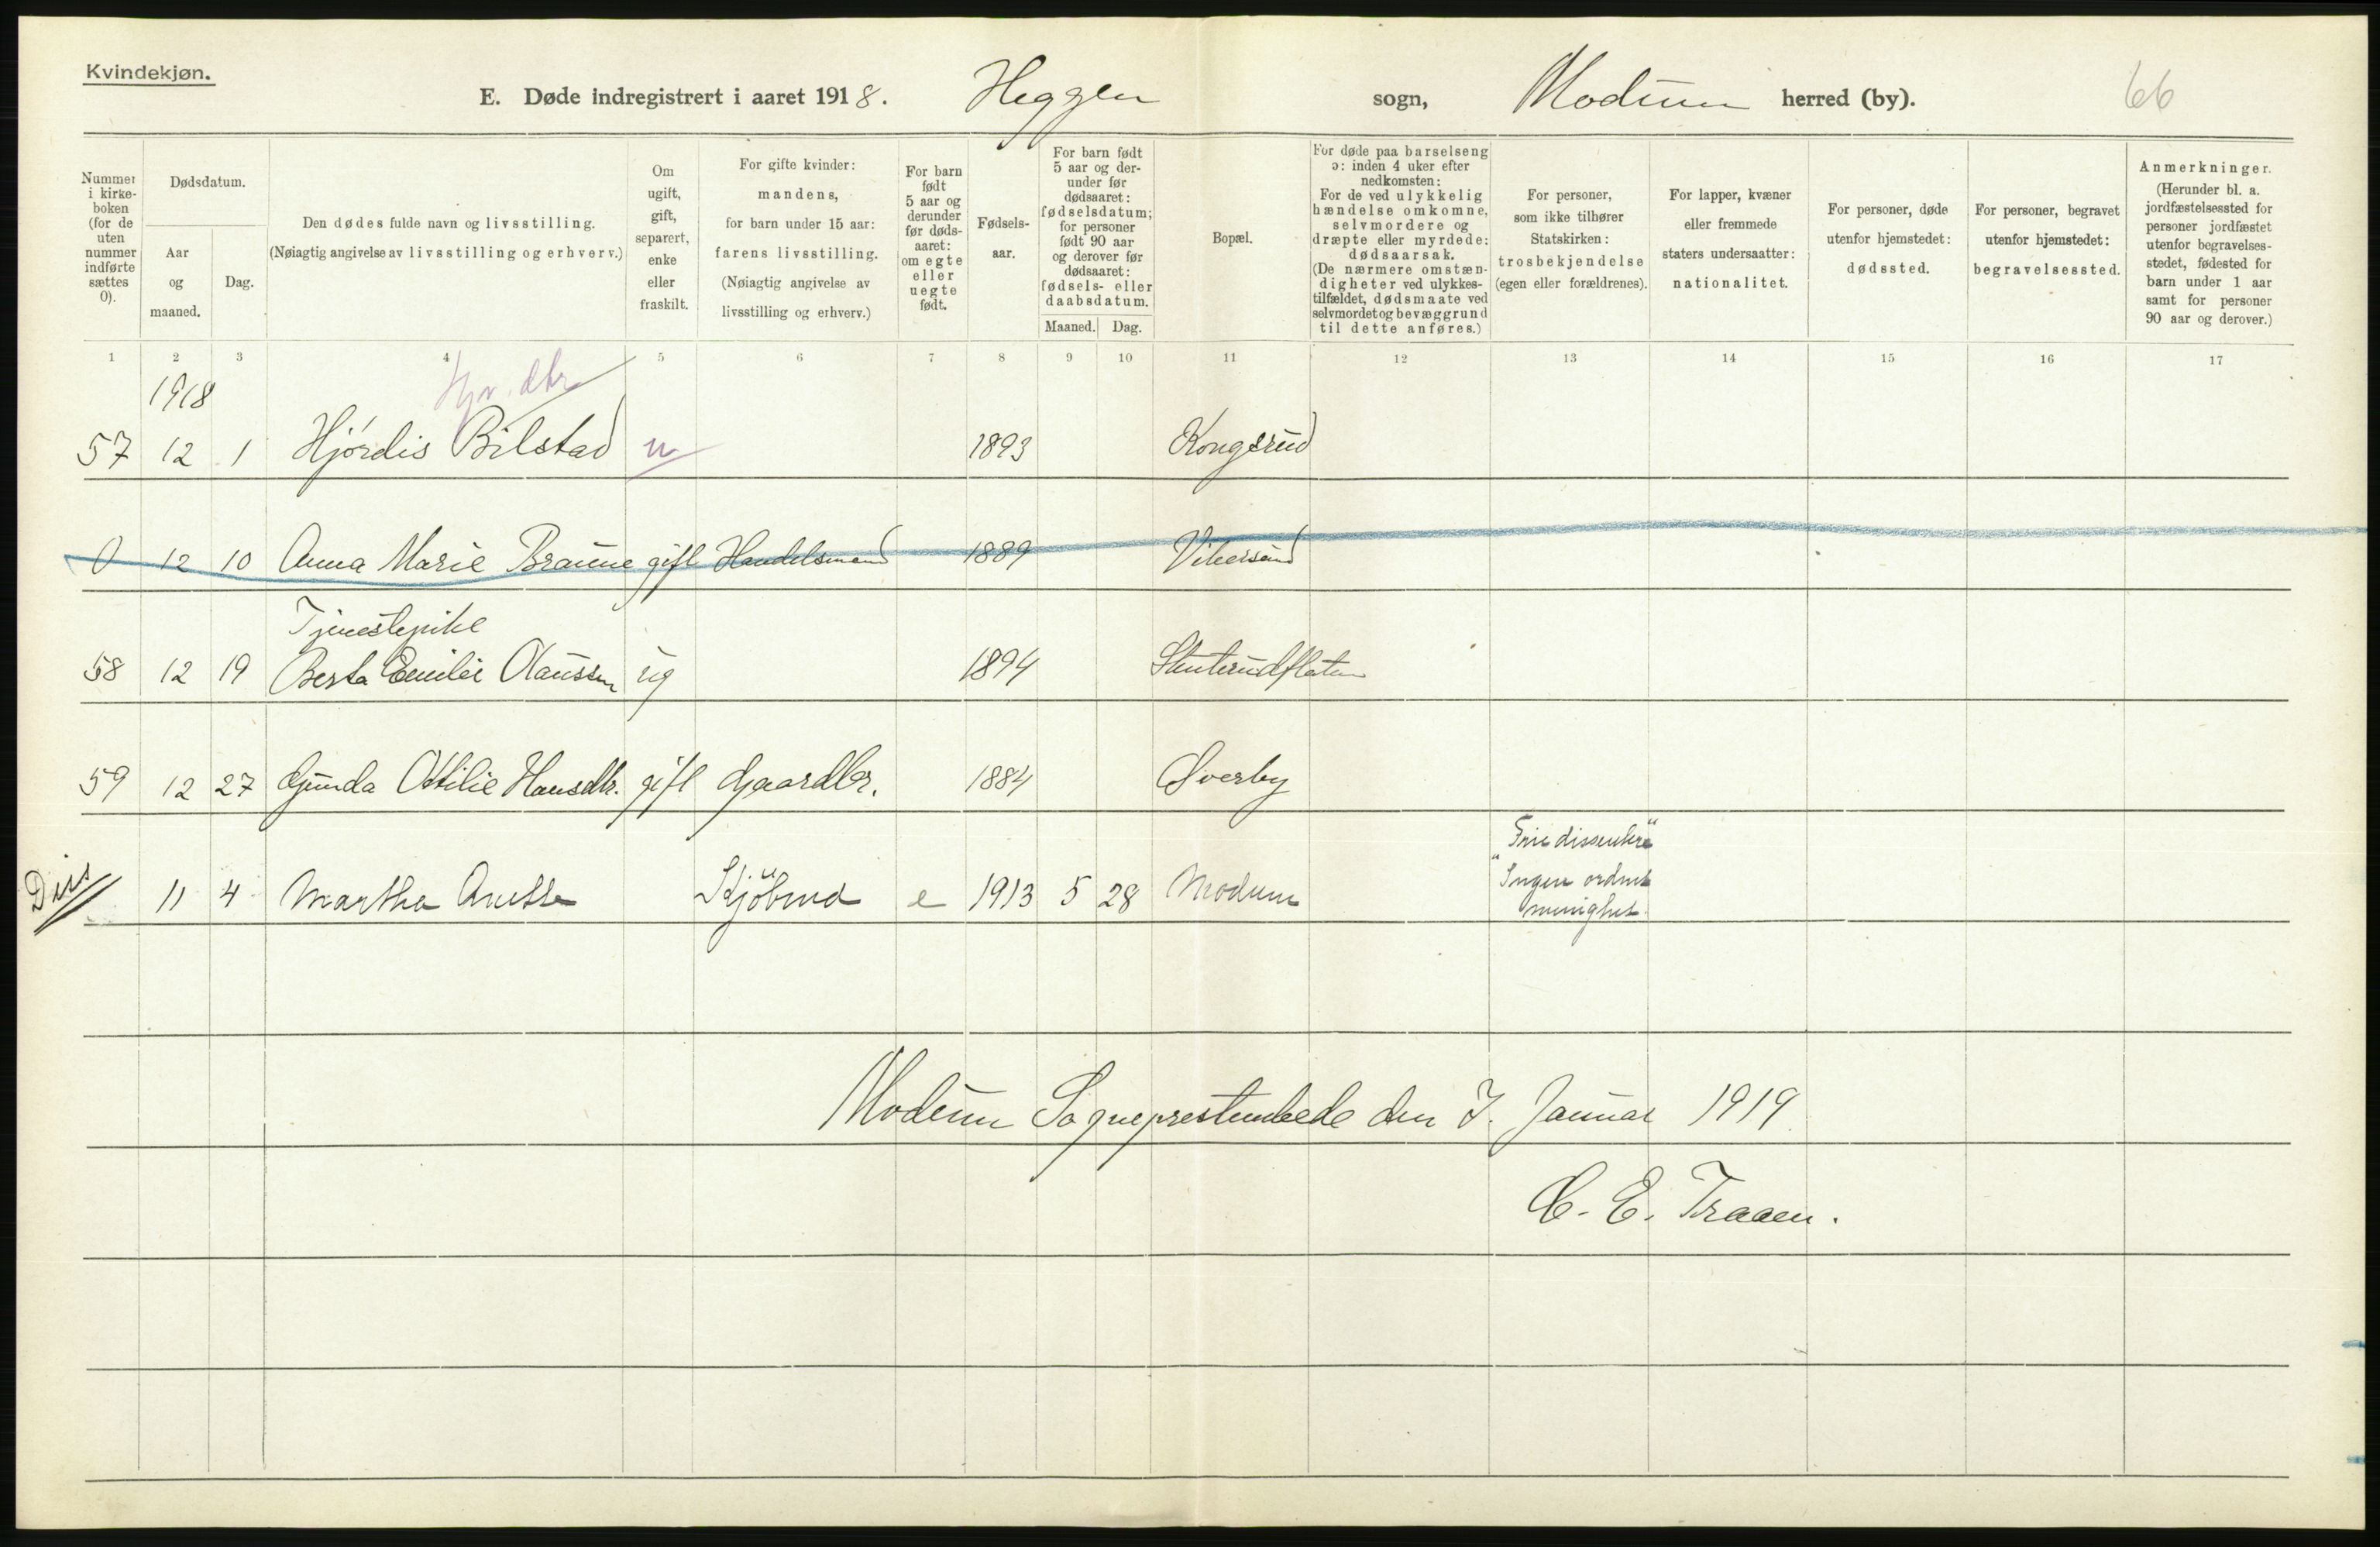 Kvindekjøn.
E. Døde indregistrert i aaret 1918. Heggen sogn, Modum herred (by). 66
Nummer i kirke-boken (for de uten nummer indførte sættes 0).
Dødsdatum.
Aar og maaned.
Dag.
Den dødes fulde navn og livsstilling.
(Nøiagtig angivelse av livsstilling og erhverv.)
Om ugift, gift, separert, enke eller fraskilt.
For gifte kvinder: mandens, for barn under 15 aar: farens livsstilling. (Nøiagtig angivelse av livsstilling og erhverv.)
For barn født 5 aar og derunder før døds-aaret: om egte eller uegte født.
Fødsels-aar.
For barn født 5 aar og der-under før dødsaaret: fødselsdatum; for personer født 90 aar og derover før dødsaaret: fødsels- eller daabsdatum.
Maaned. Dag.
Bopæl.
For døde paa barselseng ɔ: inden 4 uker efter nedkomsten: For de ved ulykkelig hændelse omkomne, selvmordere og dræpte eller myrdede: dødsaarsak. (De nærmere omstæn-digheter ved ulykkes-tilfældet, dødsmaate ved selvmordet og bevæggrund til dette anføres.)
For personer, som ikke tilhører Statskirken: trosbekjendelse (egen eller forældrenes).
For lapper, kvæner eller fremmede staters undersaatter: nationalitet.
For personer, døde utenfor hjemstedet: dødssted.
For personer, begravet utenfor hjemstedet: begravelsessted.
Anmerkninger. (Herunder bl. a. jordfæstelsessted for personer jordfæstet utenfor begravelses-stedet, fødested for barn under 1 aar samt for personer 90 aar og derover.)
1 2 3 4 5 6 7 8 9 10 11 12 13 14 15 16 17
1918 Hjv. dtr
57 12 1 Hjørdis Bilstad u 1893 Kongsrud
0 12 10 Anna Marie Braune gift Handelsmand 1889 Vikersund
Tjenestepike
58 12 19 Berta Emilie Olaussen ug 1894 Stenterudflaten
59 12 27 Gunda Otilie Hansdtr. gift Gaardbr. 1884 Overby
Diss 11 4 Martha Anette e 1913 5 28 Modum
"Frie dissentere"
"Ingen ordnet
menighet
Modum Sogneprestembede den 7. Januar 1919.
C. E. Traaen.